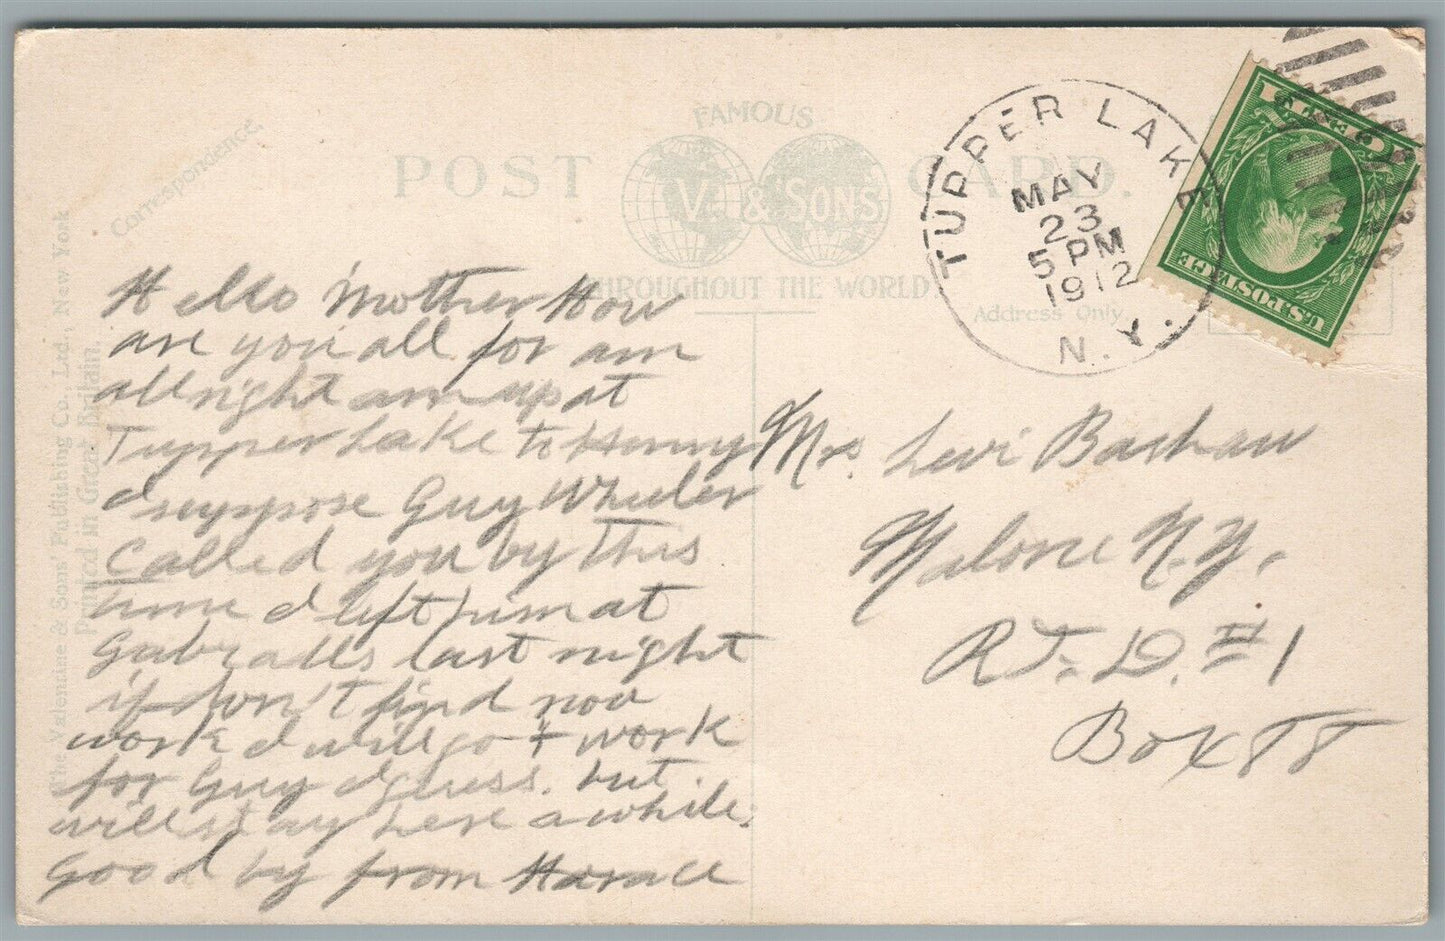 FAMOUS
POST CARD.
V. & SONS
THROUGHOUT THE WORLD.
Correspondence
Address Only.
The Valentine & Sons' Publishing Co., Ltd., New York
Printed in Great Britain.
TUPPER LAKE
MAY
23
5 PM
1912
N.Y.
U.S.POSTAGE
Hello Mother How
are you all for am
allright am up at
Tupper Lake to
I suppose Guy Wheeler
Called you by this
time I left him at
last night
if don't find now
work I will go + work
for Guy I guess. but
will stay here a while.
Good by from Horace
Mrs. Levi Bashaw
Malone N.Y.
R.F.D. #1
Box 88